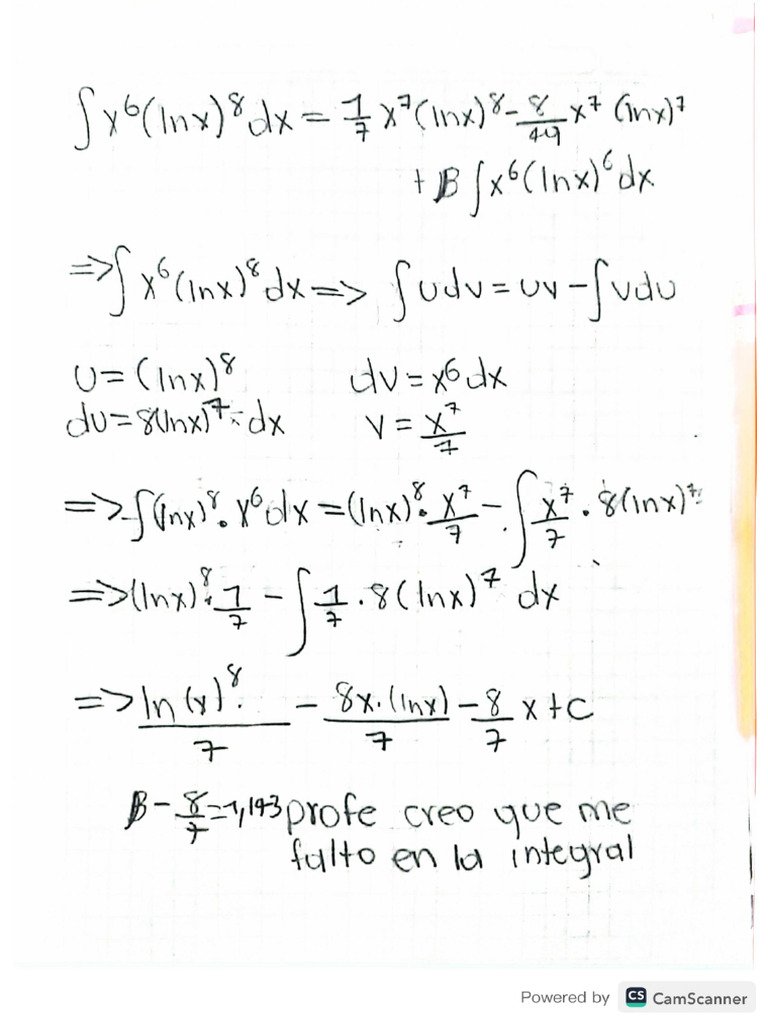 ∫x⁶(lnx)⁸dx = 1/7 x⁷(lnx)⁸ - 8/49 x⁷ (lnx)⁷
+ B ∫x⁶(lnx)⁶dx
=>∫x⁶(lnx)⁸dx => ∫udv = uv - ∫vdu
U = (lnx)⁸ dv = x⁶dx
du = 8(lnx)⁷ dx v = x⁷/7
=>∫(lnx)⁸·x⁶dx = (lnx)⁸·x⁷/7 - ∫x⁷/7·8(lnx)⁷
=>(lnx)⁸·1/7 - ∫1/7·8(lnx)⁷ dx
=>ln(x)⁸·/7 - 8x·(lnx)/7 - 8/7 x + c
B - 8/7 = 1,143 profe creo que me
falto en la integral
Powered by CS CamScanner